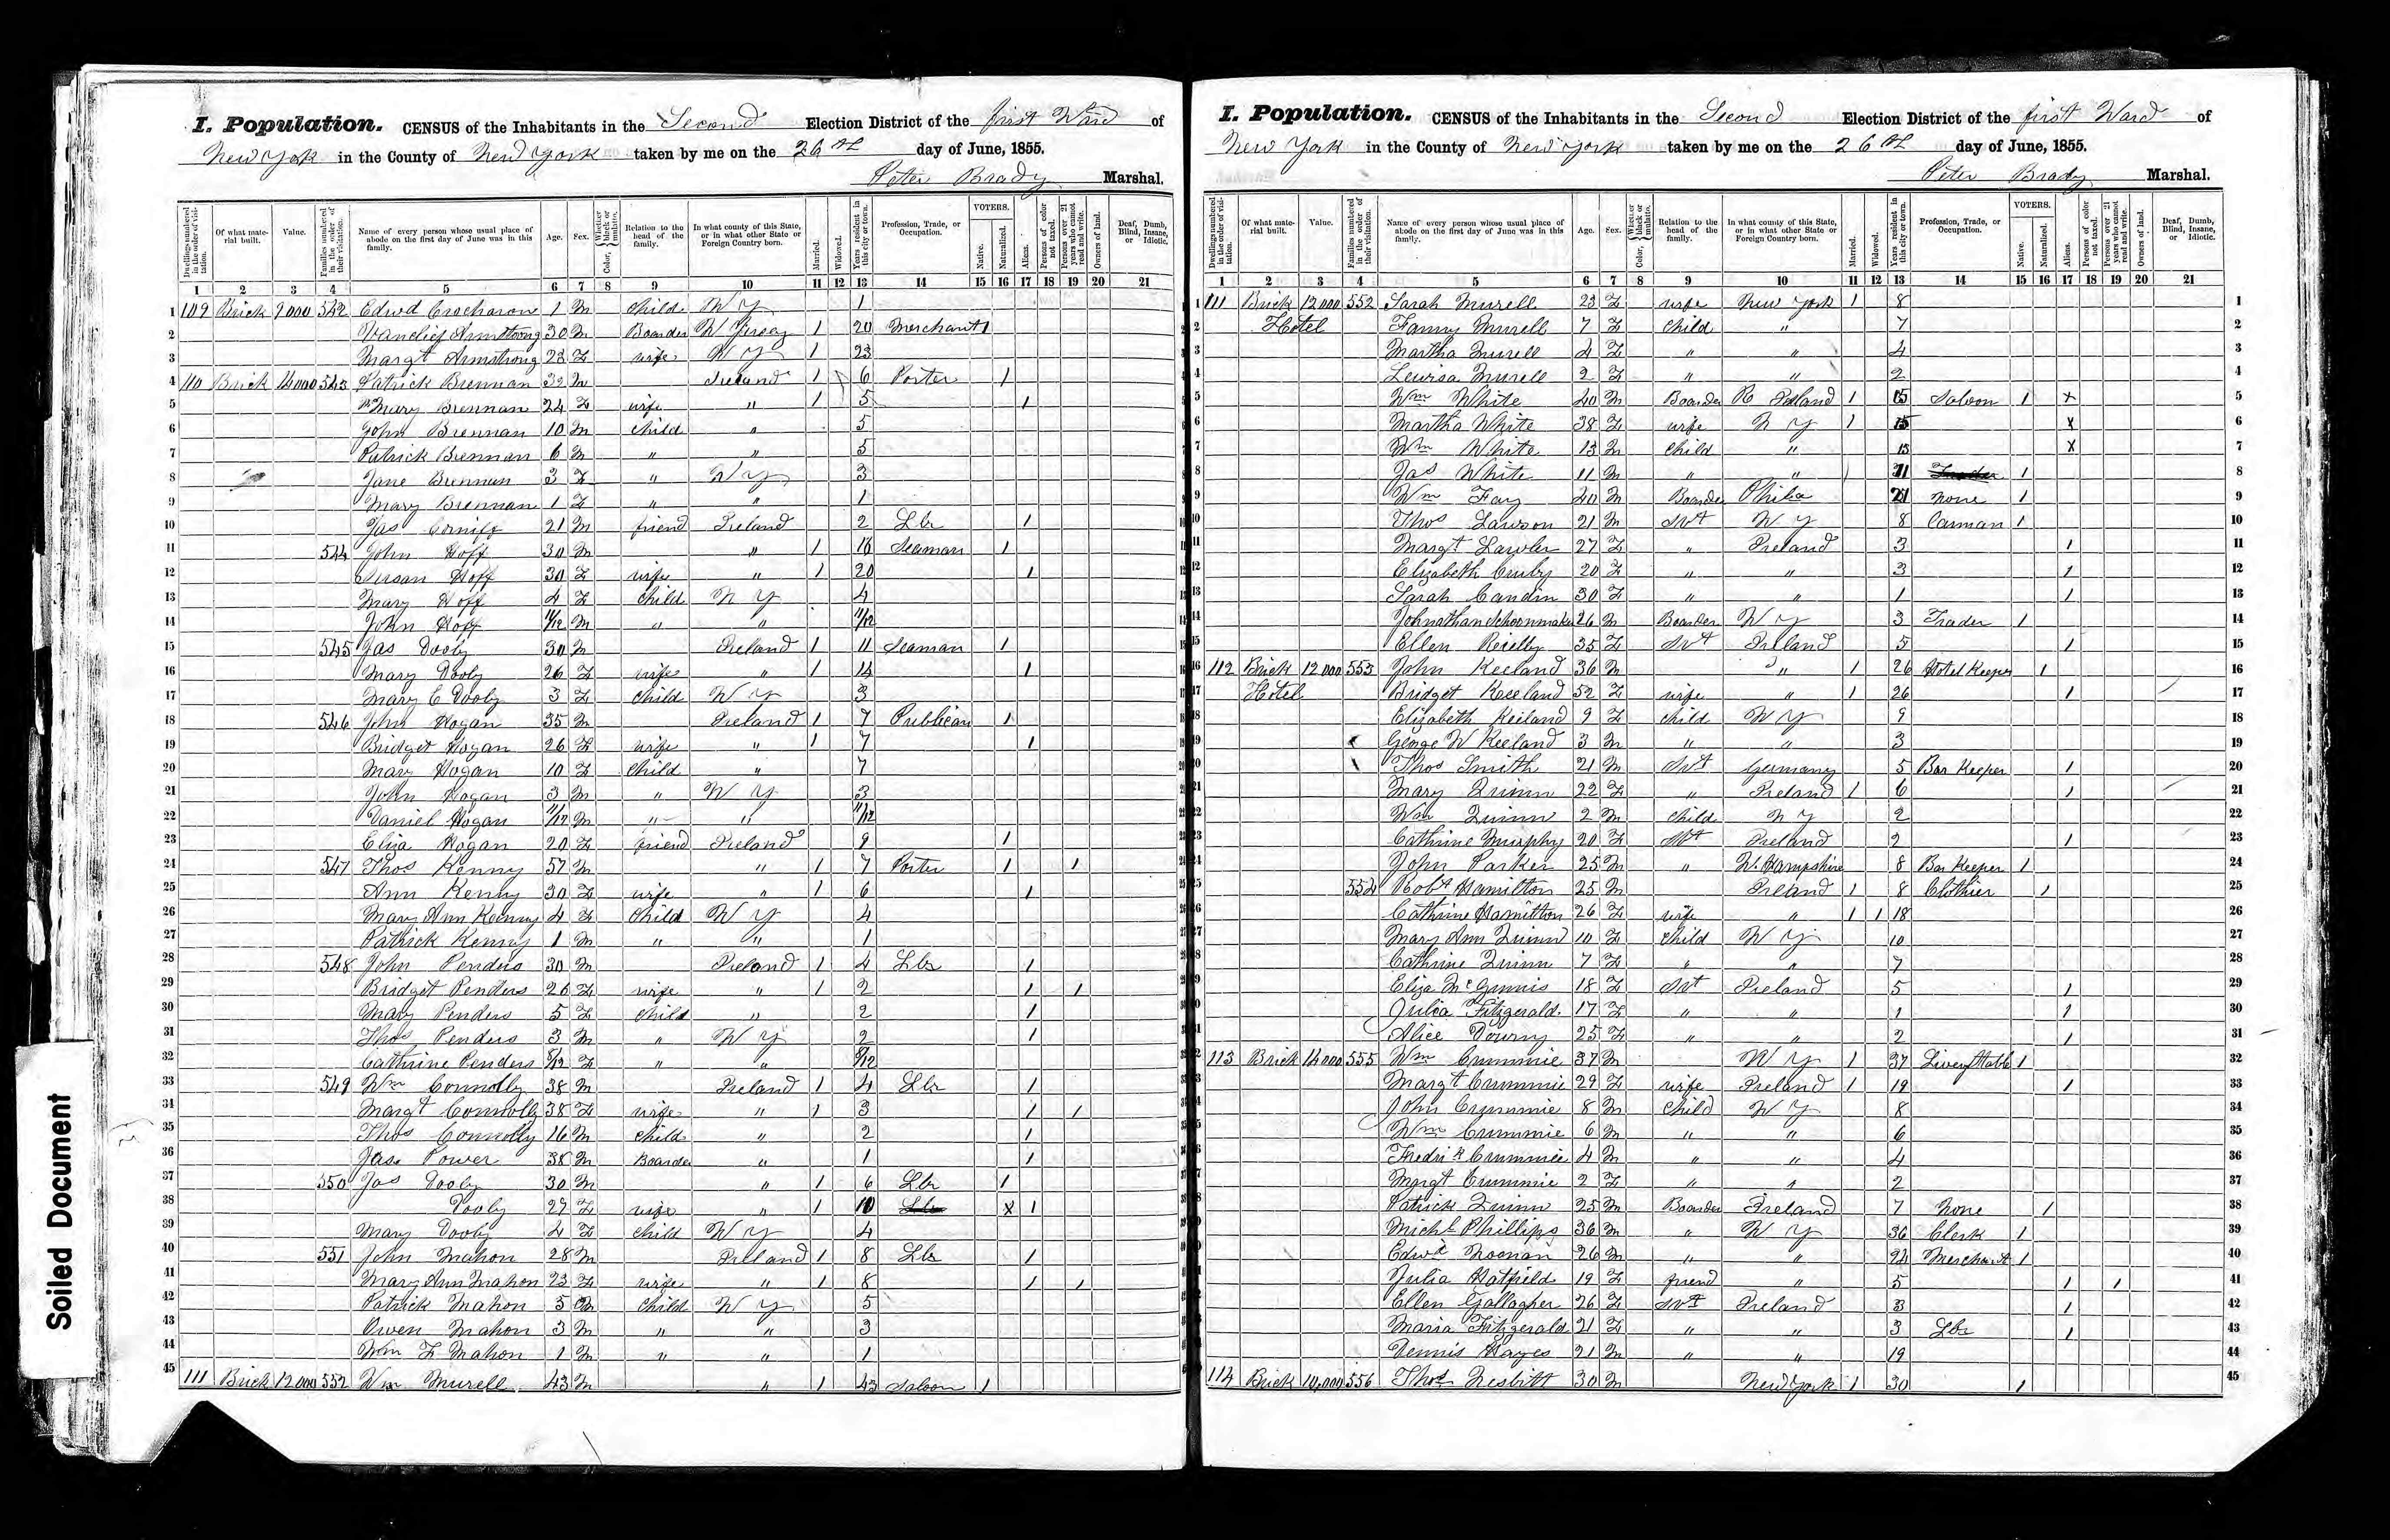 I. Population. CENSUS of the Inhabitants in the Second Election District of the first Ward of
New York in the County of New York taken by me on the 26th day of June, 1855.
Peter Brady Marshal.
Dwellings numbered in the order of visitation. Of what material built. Value. Families numbered in the order of their visitation. Name of every person whose usual place of abode on the first day of June was in this family. Age. Sex. Color, Whether black or mulatto. Relation to the head of the family. In what county of this State, or in what other State or Foreign Country born. Married. Widowed. Years resident in this city or town. Profession, Trade, or Occupation. VOTERS. Native. Naturalized. Aliens. Persons of color not taxed. Persons over 21 years who cannot read and write. Owners of land. Deaf, Dumb, Blind, Insane, or Idiotic.
1 2 3 4 5 6 7 8 9 10 11 12 13 14 15 16 17 18 19 20 21
1 109 Brick 9000 542 Edwd Crocheron 1 M child N Y 1
2 Armstrong 30 M Boarder N Jersey 1 20 Merchant 1
3 Margt Armstrong 23 F wife N Y 1 23
4 110 Brick 14000 543 Patrick Brennan 32 M Ireland 1 6 Porter 1
5 Mary Brennan 24 F wife " 1 5 1
6 John Brennan 10 M child " 5
7 Patrick Brennan 6 M " " 5
8 Jane Brennan 3 F " N Y 3
9 Mary Brennan 1 F " " 1
10 Jas 21 M friend Ireland 2 Lbr 1
11 544 John Hoff 30 M " 1 16 Seaman 1
12 Susan Hoff 30 F wife " 1 20 1
13 Mary Hoff 4 F child N Y 4
14 John Hoff 11/12 M " " 11/12
15 545 Jas Dooly 30 M Ireland 1 11 Seaman 1
16 Mary Dooly 26 F wife " 1 14 1
17 Mary E Dooly 3 F child N Y 3
18 546 John Hogan 35 M Ireland 1 7 Publican 1
19 Bridget Hogan 26 F wife " 1 7 1
20 Mary Hogan 10 F child " 7
21 John Hogan 3 M " N Y 3
22 Daniel Hogan 11/12 M " " 11/12
23 Eliza Hogan 20 F friend Ireland 9 1
24 547 Thos Kenny 57 M " 1 7 Porter 1 1
25 Ann Kenny 30 F wife " 1 6 1
26 Mary Ann Kenny 4 F child N Y 4
27 Patrick Kenny 1 M " " 1
28 548 John Penders 30 M Ireland 1 4 Lbr 1
29 Bridget Penders 26 F wife " 1 2 1 1
30 Mary Penders 5 F child " 2 1
31 Thos Penders 3 M " N Y 2 1
32 Cathrine Penders 8/12 F " " 8/12
33 549 Wm Connolly 38 M Ireland 1 4 Lbr 1
34 Margt Connolly 38 F wife " 1 3 1 1
35 Thos Connolly 16 M child " 2 1
36 Jas. Power 38 M Boarder " 1 1
37 550 Jas Dooly 30 M " 1 6 Lbr 1
38 Dooly 27 F wife " 1 10 Lbr X 1
39 Mary Dooly 4 F child N Y 4
40 551 John Mahon 28 M Ireland 1 8 Lbr 1
41 Mary Ann Mahon 23 F wife " 1 8 1 1
42 Patrick Mahon 5 M child N Y 5
43 Owen Mahon 3 M " " 3
44 Wm F Mahon 1 M " " 1
45 111 Brick 12000 552 Wm Murell 43 M " 1 43 Saloon 1
I. Population. CENSUS of the Inhabitants in the Second Election District of the first Ward of
New York in the County of New York taken by me on the 26th day of June, 1855.
Peter Brady Marshal.
Dwellings numbered in the order of visitation. Of what material built. Value. Families numbered in the order of their visitation. Name of every person whose usual place of abode on the first day of June was in this family. Age. Sex. Color, Whether black or mulatto. Relation to the head of the family. In what county of this State, or in what other State or Foreign Country born. Married. Widowed. Years resident in this city or town. Profession, Trade, or Occupation. VOTERS. Native. Naturalized. Aliens. Persons of color not taxed. Persons over 21 years who cannot read and write. Owners of land. Deaf, Dumb, Blind, Insane, or Idiotic.
1 2 3 4 5 6 7 8 9 10 11 12 13 14 15 16 17 18 19 20 21
1 111 Brick 12000 552 Sarah Murell 23 F wife New York 1 8 1
2 Hotel Fanny Murell 7 F child " 7 2
3 Martha Murell 4 F " " 4 3
4 Lewisa Murell 2 F " " 2 4
5 Wm White 40 M Boarder R Island 1 15 Saloon 1 X 5
6 Martha White 38 F wife N Y 1 15 X 6
7 Wm White 13 M child " 13 X 7
8 Jas White 11 M " " 11 Trader 1 8
9 Wm Fay 40 M Boarder Phila 21 None 1 9
10 Thos Lawson 21 M Svt N Y 8 Carman 1 10
11 Margt Lawler 27 F " Ireland 3 1 11
12 Elizabeth 20 F " " 3 1 12
13 Sarah Candin 30 F " " 1 1 13
14 Johnathan Schoonmaker 26 M Boarder N Y 3 Trader 1 14
15 Ellen Reielly 35 F Svt Ireland 5 1 15
16 112 Brick 12000 553 John Keeland 36 M " 1 26 Hotel Keeper 1 16
17 Hotel Bridget Keeland 52 F wife " 1 26 1 17
18 Elizabeth Keiland 9 F child N Y 9 18
19 George W Keeland 3 M " " 3 19
20 Thos Smith 21 M Svt Germany 5 Bar Keeper 1 20
21 Mary Quinn 22 F " Ireland 1 6 1 21
22 Wm Quinn 2 M child N Y 2 22
23 Cathrine Murphy 20 F Svt Ireland 2 1 23
24 John Parker 25 M " N. Hampshire 8 Bar Keeper 1 24
25 554 Robt Hamilton 25 M Ireland 1 8 Clothier 1 25
26 Cathrine Hamilton 26 F wife " 1 1 18 26
27 Mary Ann Quinn 10 F child N Y 10 27
28 Cathrine Quinn 7 F " " 7 28
29 Eliza McGinnis 18 F Svt Ireland 5 1 29
30 Julia Fitzgerald 17 F " " 1 1 30
31 Alice Downy 25 F " " 2 1 31
32 113 Brick 14000 555 Wm Crummie 37 M N Y 1 37 Livery Stable 1 32
33 Margt Crummie 29 F wife Ireland 1 19 1 33
34 John Crummie 8 M child N Y 8 34
35 Wm Crummie 6 M " " 6 35
36 Fredrik Crummie 4 M " " 4 36
37 Margt Crummie 2 F " " 2 37
38 Patrick Quinn 25 M Boarder Ireland 7 None 1 38
39 Michl Phillips 36 M " N Y 36 Clerk 1 39
40 Edwd Noonan 26 M " " 24 Merchant 1 40
41 Julia Hatfield 19 F friend " 5 1 1 41
42 Ellen Gallagher 26 F Svt Ireland 3 1 42
43 Maria Fitzgerald 21 F " " 3 Lbr 1 43
44 Dennis Hayes 21 M " " 19 44
45 114 Brick 14,000 556 Thos Nesbitt 30 M New York 1 30 1 45
Soiled Document